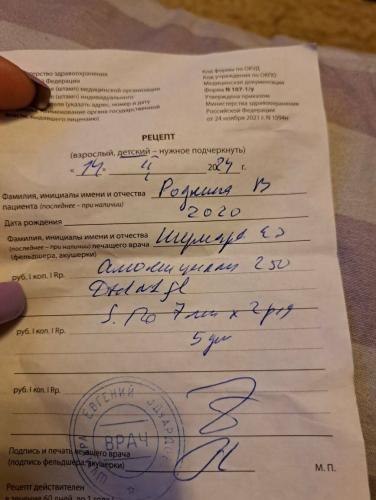 терство здравоохранения
й Федерации
е (штамп) медицинской организации
е (штамп) индивидуального
еля (указать адрес, номер и дату
именование органа государственной
выдавшего лицензию)
Код формы по ОКУД
Код учреждения по ОКПО
Медицинская документация
Форма N 107-1/у
Утверждена приказом
Министерства здравоохранения
Российской Федерации
от 24 ноября 2021 г. N 1094н
РЕЦЕПТ
(взрослый, детский – нужное подчеркнуть)
«14» 4 2024 г.
Фамилия, инициалы имени и отчества
пациента (последнее – при наличии) Роднина В
Дата рождения 2020
Фамилия, инициалы имени и отчества
(последнее – при наличии) лечащего врача
(фельдшера, акушерки)
руб. I коп. I Rp. 250
S. По 7 мл х 2 р/д
руб. I коп. I Rp.
5 дн
руб. I коп. I Rp.
ЕВГЕНИЙ
ВРАЧ
Подпись и печать лечащего врача
(подпись фельдшера, акушерки)
М. П.
Рецепт действителен